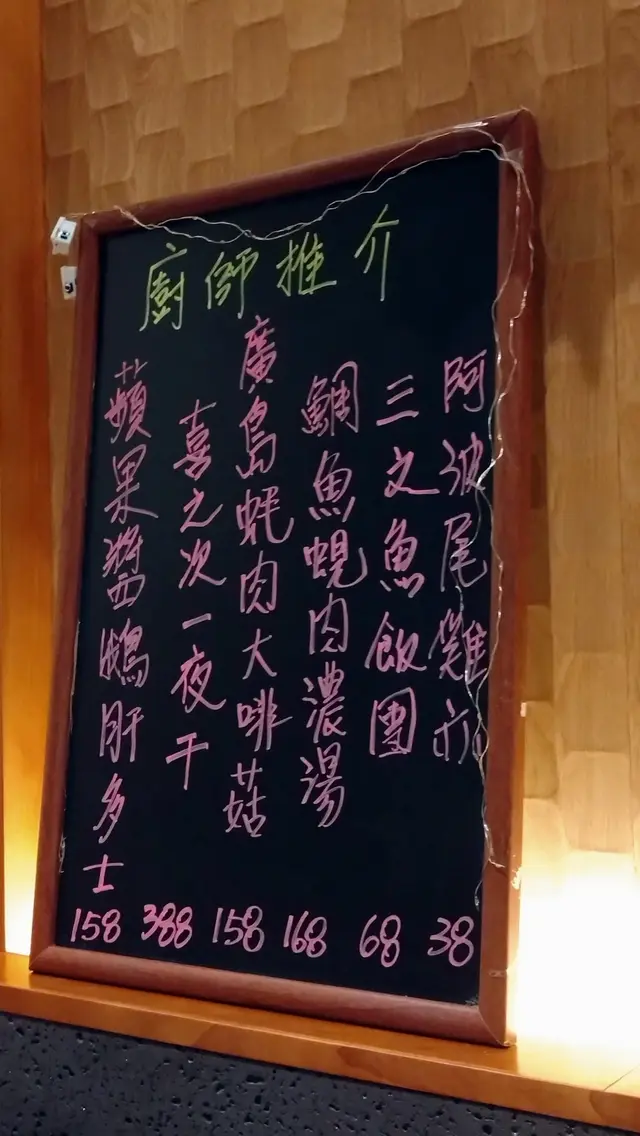 廚師推介
阿波尾雞
三文魚飯團
鯛魚蜆肉濃湯
廣島蚝肉大啡菇
喜之次一夜干
蘋果醬鵝肝多士
158 388 158 168 68 38